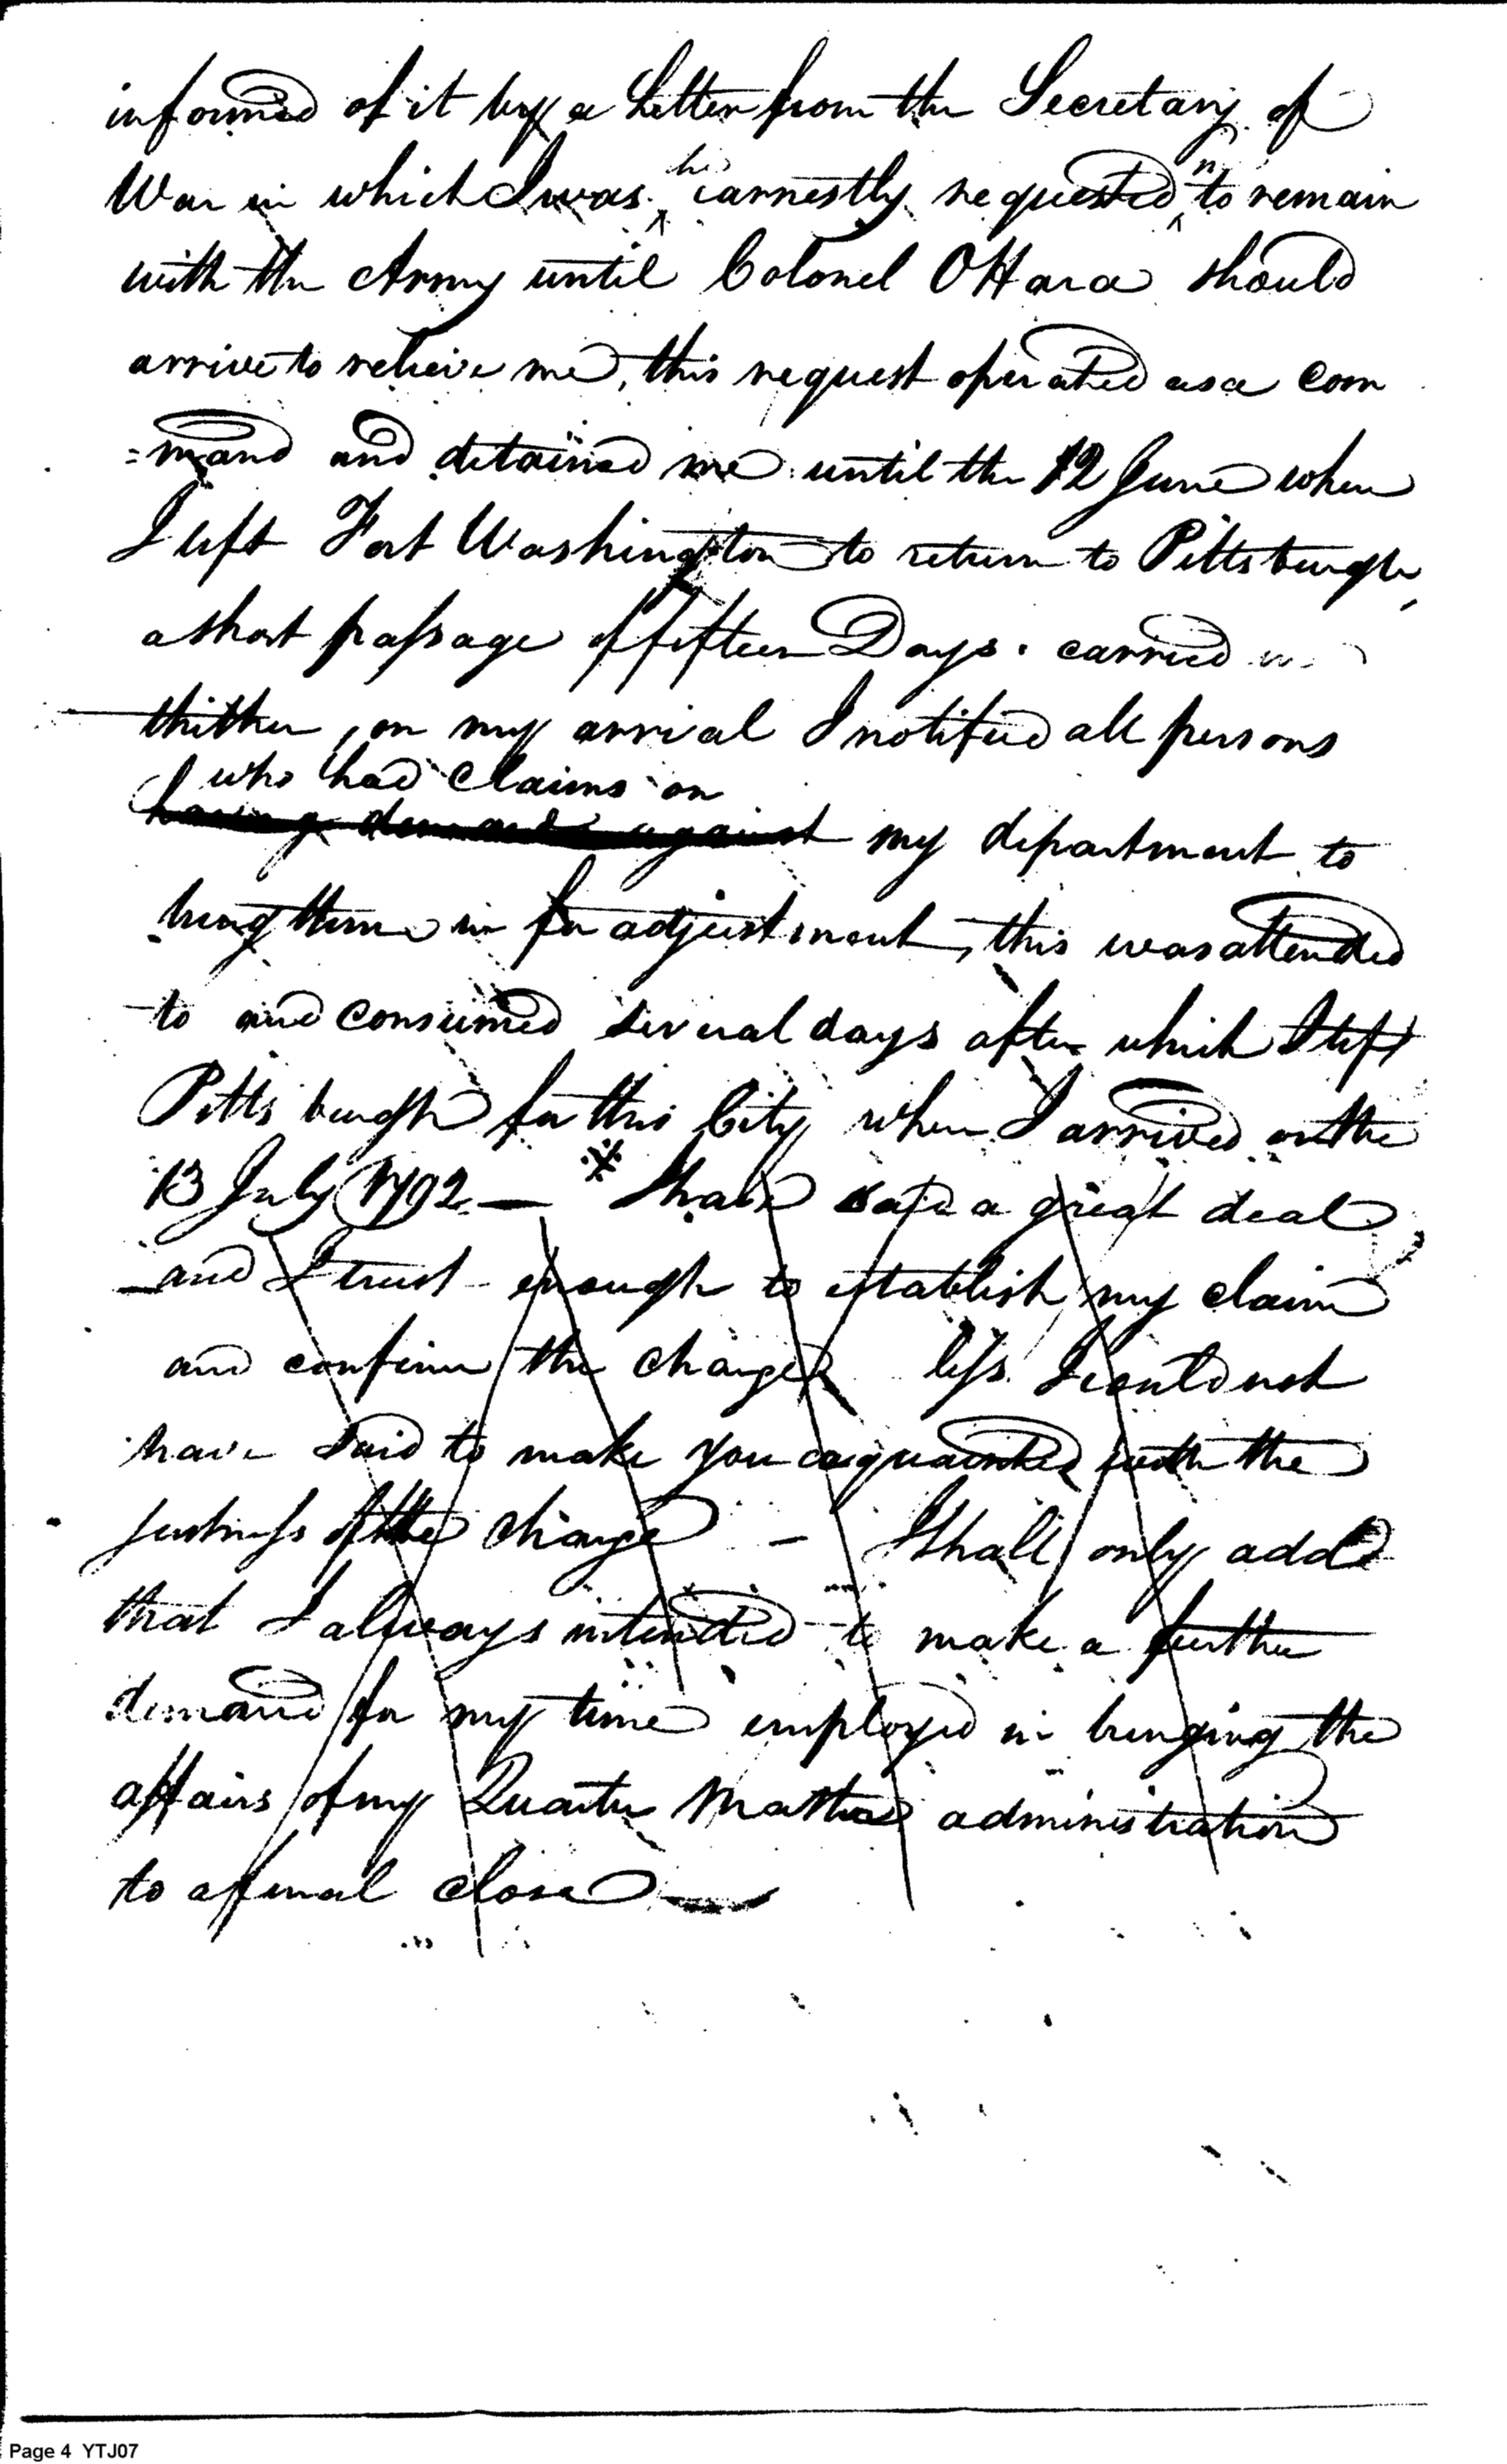 informed of it by a Letter from the Secretary of
War in which I was earnestly requested to remain
with the Army until Colonel OHara should
arrive to relieve me, this request operated as a com
=mand and detained me until the 12 June when
I left Fort Washington to return to Pittsburgh,
a short passage of fifteen Days. carried
thither, on my arrival I notified all persons
who had Claims on
having demands against my department to
bring them in for adjustment, this was attended
to and consumed several days after which I left
Pittsburgh for this City where I arrived on the
13 July 1792 — * I have said a great deal
and I trust enough to establish my claim
and confirm the charge less I could not
have said to make you acquainted with the
justness of the charge — I shall only add
that I always intended to make a further
demand for my time employed in bringing the
affairs of my Quarter Master administration
to a final close —
Page 4 YTJ07